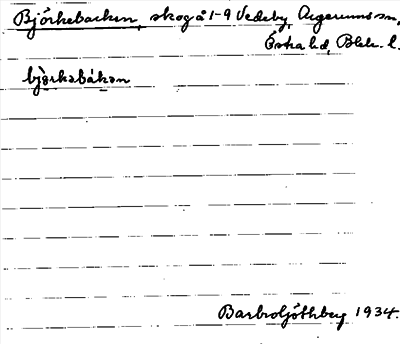 Björkebacken, skog å 1-9 Vedeby, Augerums sn,
Östra hd, Blek. l.
björkabákan
Barbro Ljóthberg 1934.